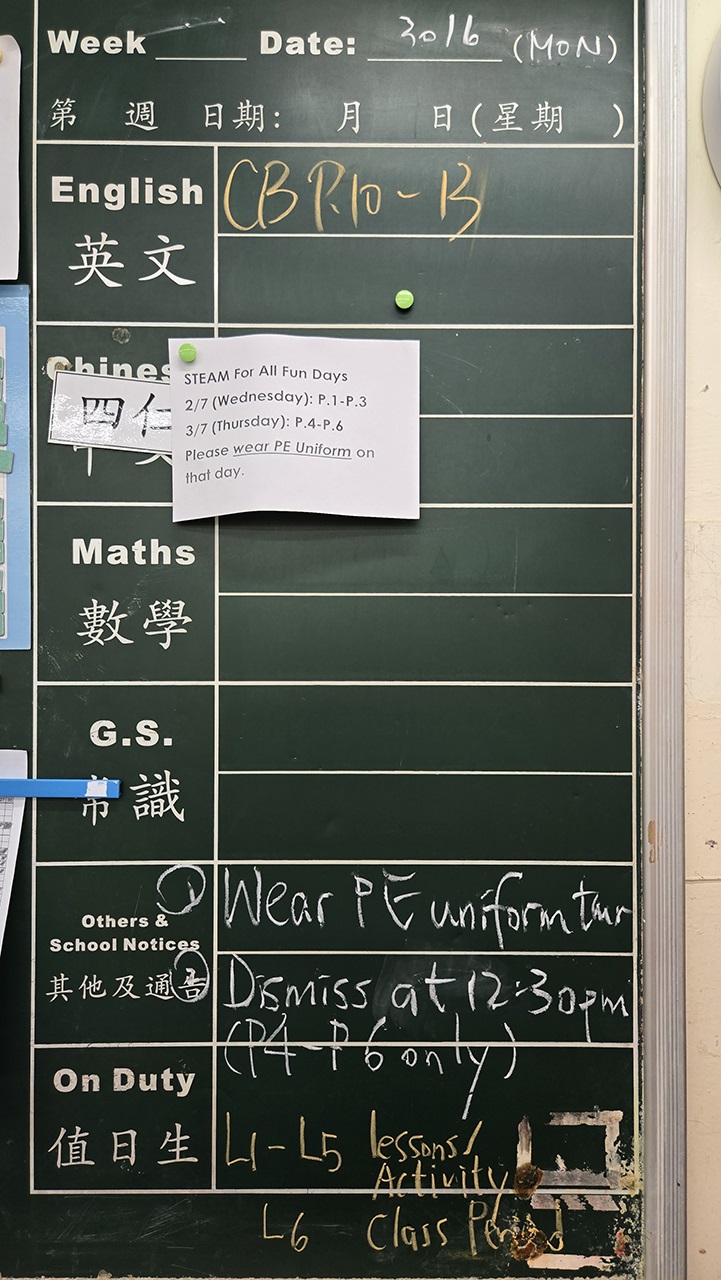 Week Date: 30/6 (MON)
第 週 日期: 月 日(星期 )
English CB P.10-13
英文
Chines
四仁
STEAM For All Fun Days
2/7 (Wednesday): P.1-P.3
3/7 (Thursday): P.4-P.6
Please wear PE Uniform on
that day.
Maths
數學
G.S.
常識
Others &
School Notices
其他及通告
① Wear PE uniform tmr
② Dismiss at 12:30pm
(P4-P6 only)
On Duty
值日生
L1-L5 lessons/
Activity
L6 Class Period